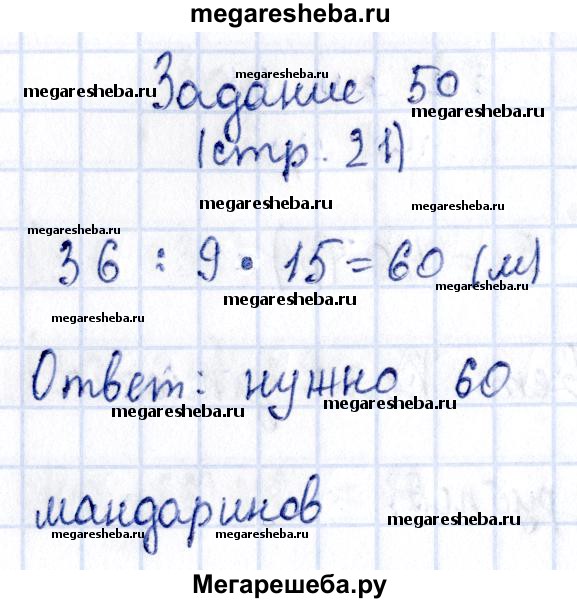 megaresheba.ru
Задание 50
megaresheba.ru
megaresheba.ru
megaresheba.ru
(стр. 21)
megaresheba.ru
megaresheba.ru
megaresheba.ru
36 : 9 · 15 = 60 (м)
megaresheba.ru
megaresheba.ru
megaresheba.ru
Ответ: нужно 60
megaresheba.ru
megaresheba.ru
мандаринов
megaresheba.ru
Мегарешеба.ру